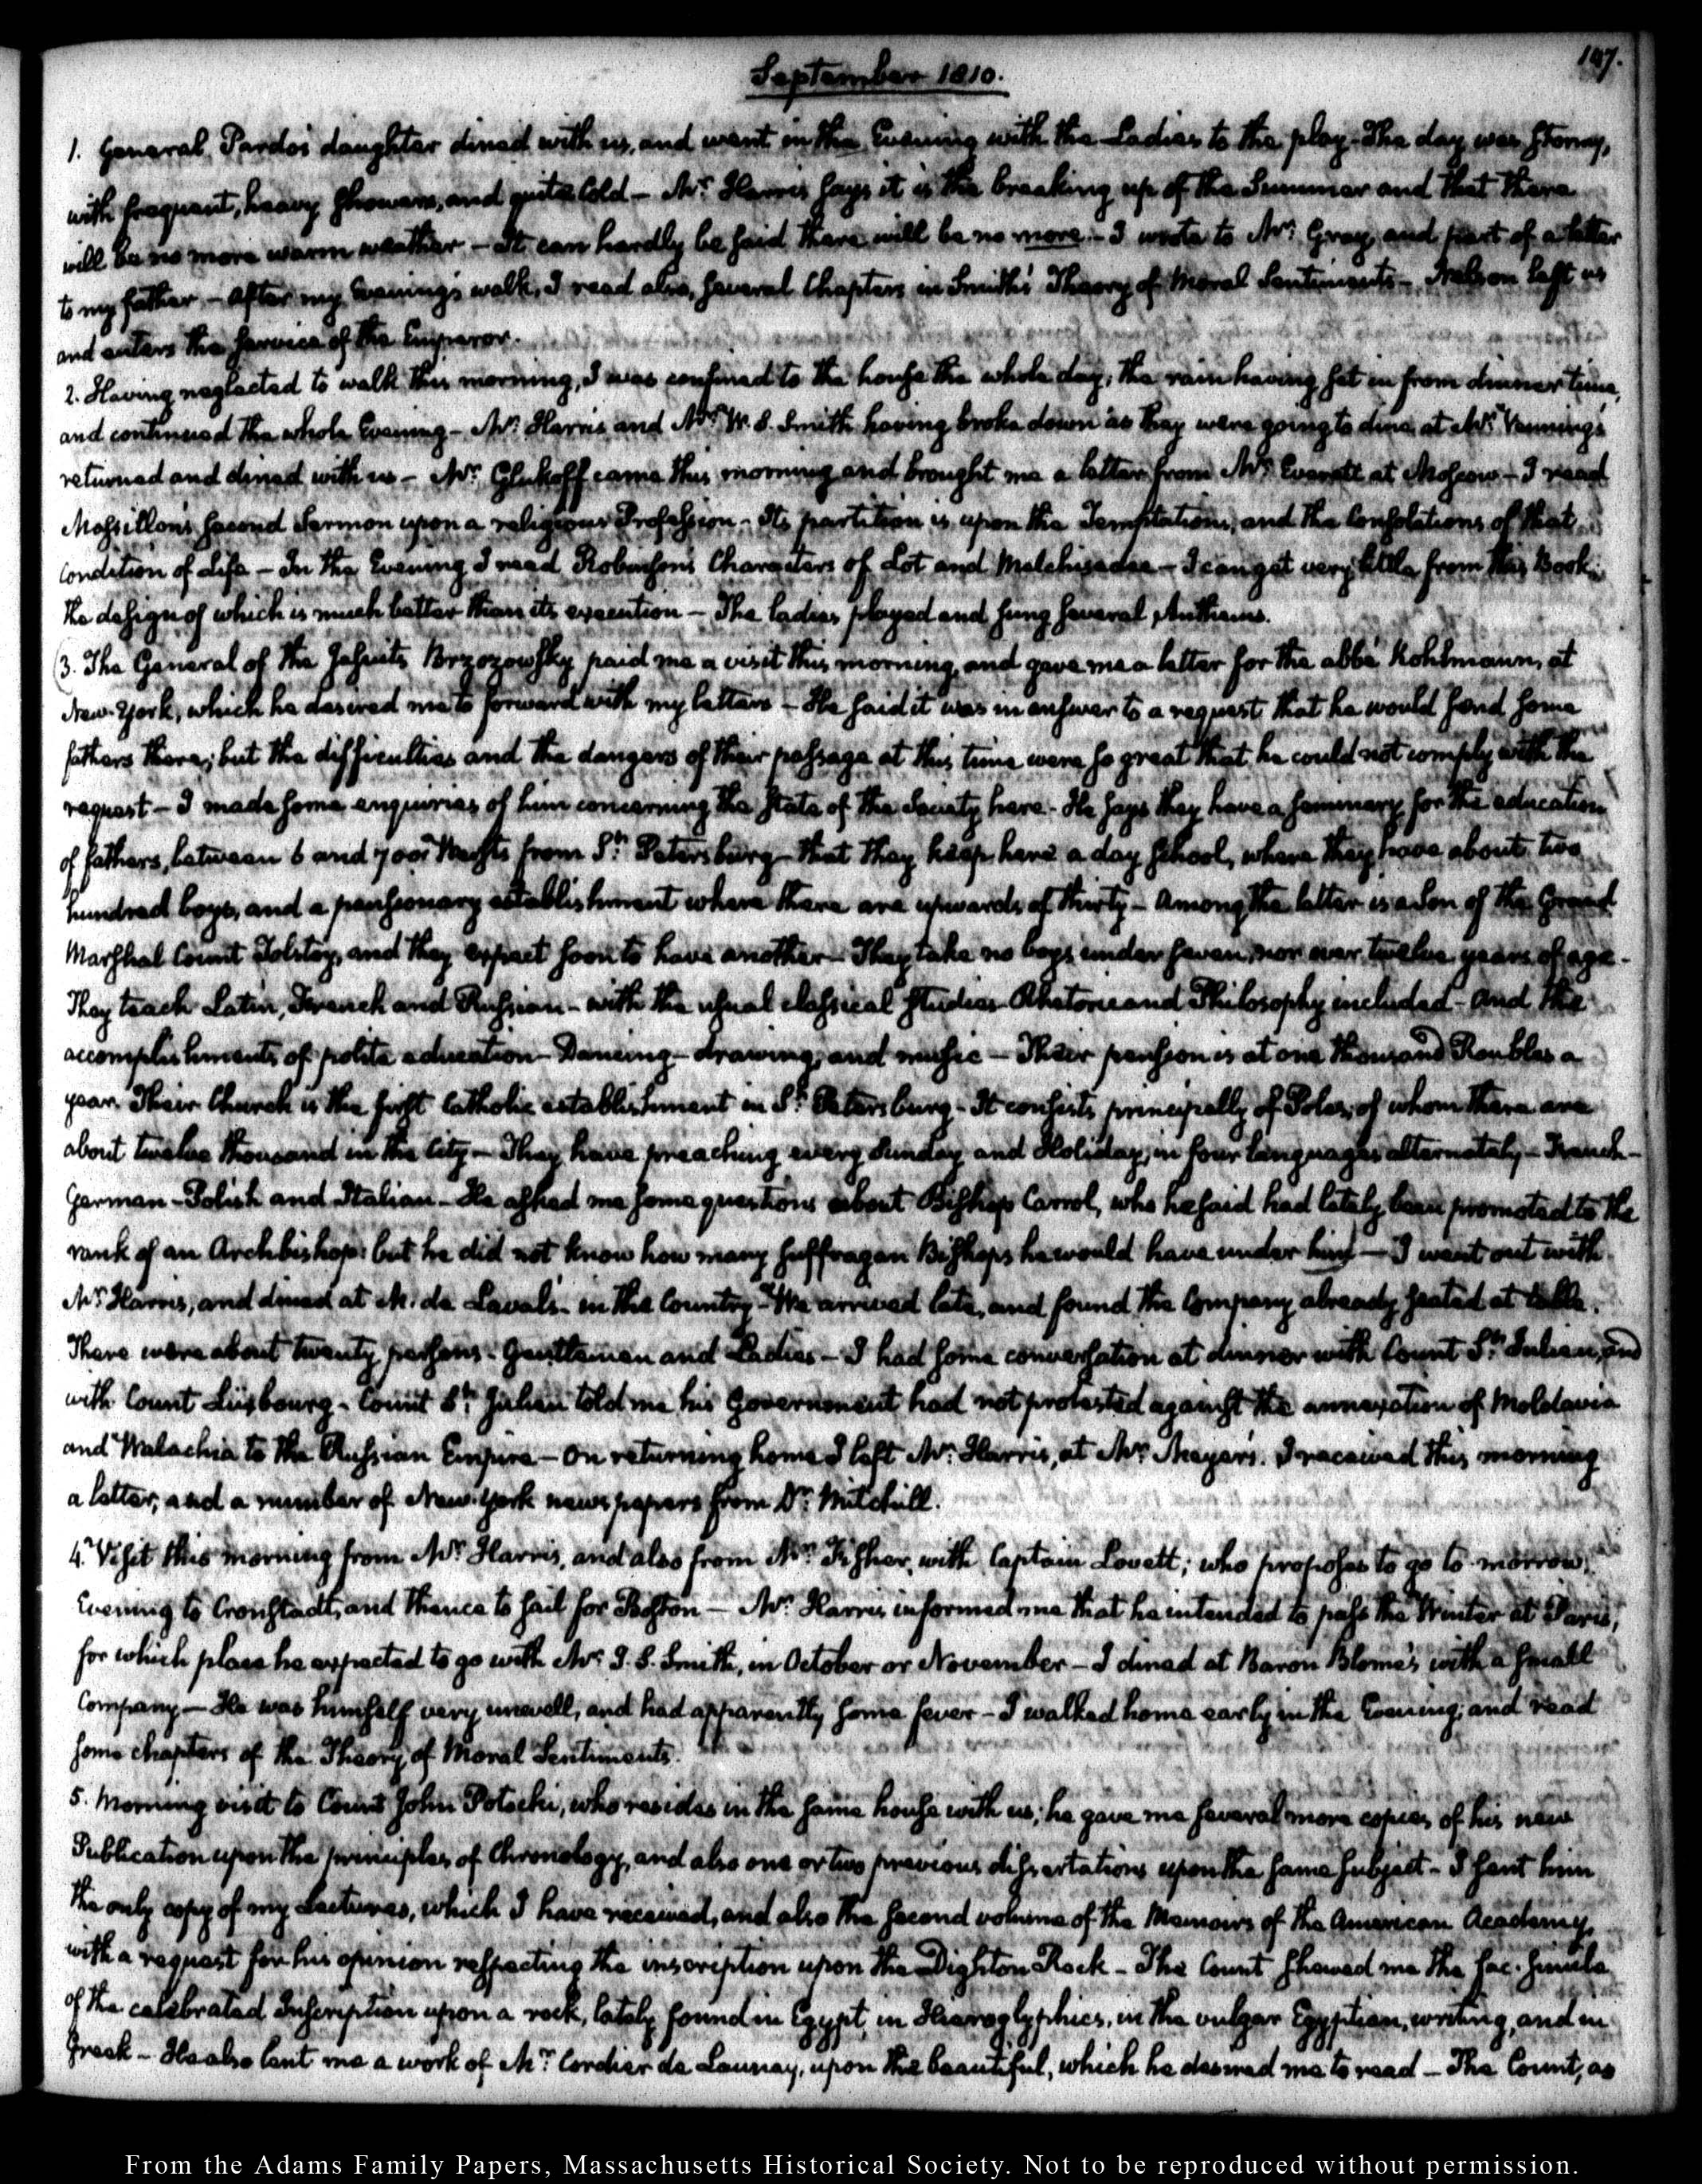 147.
September 1810.
1. General Pardo's daughter dined with us, and went in the Evening with the Ladies to the play. The day was stormy,
with frequent, heavy showers, and quite Cold — Mr. Harris says it is the breaking up of the Summer and that there
will be no more warm weather. — It can hardly be said there will be no more. — I wrote to Mr. Gray, and part of a letter
to my father. — After my Evening's walk, I read also, several Chapters in Smith's Theory of Moral Sentiments — Nelson left us
and enters the service of the Emperor.
2. Having neglected to walk this morning, I was confined to the house the whole day; the rain having set in from dinner time,
and continued the whole Evening — Mr. Harris and Mr. W. S. Smith having broke down as they were going to dine at Mr. Venning's
returned and dined with us — Mr. Glukoff came this morning and brought me a letter from Mr. Everett at Moscow — I read
Massillon's second Sermon upon a religious Profession — Its partition is upon the Temptations, and the Consolations of that
condition of Life — In the Evening I read Robinson's Characters of Lot and Melchisedec — I can get very little from this Book;
the design of which is much better than its execution — The ladies played and sung several Anthems.
3. The General of the Jesuits Brzozowsky paid me a visit this morning, and gave me a letter for the abbé Kohlmann, at
New-York, which he desired me to forward with my letters — He said it was in answer to a request that he would send some
fathers there; but the difficulties and the dangers of their passage at this time were so great that he could not comply with the
request — I made some enquiries of him concerning the state of the Society here. He says they have a seminary for the education
of fathers, between 6 and 700 Wersts from St. Petersburg — that they keep here a day school, where they have about two
hundred boys, and a pensionary establishment where there are upwards of thirty — Among the latter is a Son of the Grand
Marshal Count Tolstoy, and they expect soon to have another — They take no boys under seven, nor over twelve years of age.
They teach Latin, French and Russian — with the usual classical studies Rhetoric and Philosophy included — and the
accomplishments of polite education — Dancing — drawing, and music — Their pension is at one thousand Roubles a
year. Their Church is the first Catholic establishment in St. Petersburg — It consists principally of Poles, of whom there are
about twelve thousand in the City — They have preaching every Sunday and Holiday, in four languages alternately — French —
German — Polish and Italian — He asked me some questions about Bishop Carrol, who he said had lately been promoted to the
rank of an Archbishop: but he did not know how many suffragan Bishops he would have under him — I went out with
Mr. Harris, and dined at M. de Laval's in the Country — We arrived late, and found the Company already seated at table.
There were about twenty persons — Gentlemen and Ladies — I had some conversation at dinner with Count St. Julien, and
with Count Luxbourg — Count St. Julien told me his Government had not protested against the annexation of Moldavia
and Walachia to the Russian Empire — On returning home I left Mr. Harris, at Mr. Meyer's. I received this morning
a letter, and a number of New-York newspapers from Dr. Mitchill.
4. Visit this morning from Mr. Harris, and also from Mr. Fisher, with Captain Lovett; who proposes to go to-morrow
Evening to Cronstadt, and thence to sail for Boston — Mr. Harris informed me that he intended to pass the Winter at Paris,
for which place he expected to go with Mr. J. S. Smith, in October or November — I dined at Baron Blome's with a small
Company — He was himself very unwell, and had apparently some fever — I walked home early in the Evening; and read
some chapters of the Theory of Moral Sentiments.
5. Morning visit to Count John Potocki, who resides in the same house with us; he gave me several more copies of his new
Publication upon the principles of Chronology, and also one or two previous dissertations upon the same subject — I sent him
the only copy of my Lectures, which I have received, and also the second volume of the Memoirs of the American Academy,
with a request for his opinion respecting the inscription upon the Dighton Rock — The Count shewed me the fac-simile
of the celebrated Inscription upon a rock, lately found in Egypt, in Hieroglyphics, in the vulgar Egyptian, writing, and in
Greek — He also lent me a work of Mr. Cordier de Launay, upon the beautiful, which he desired me to read — The Count, as
From the Adams Family Papers, Massachusetts Historical Society. Not to be reproduced without permission.